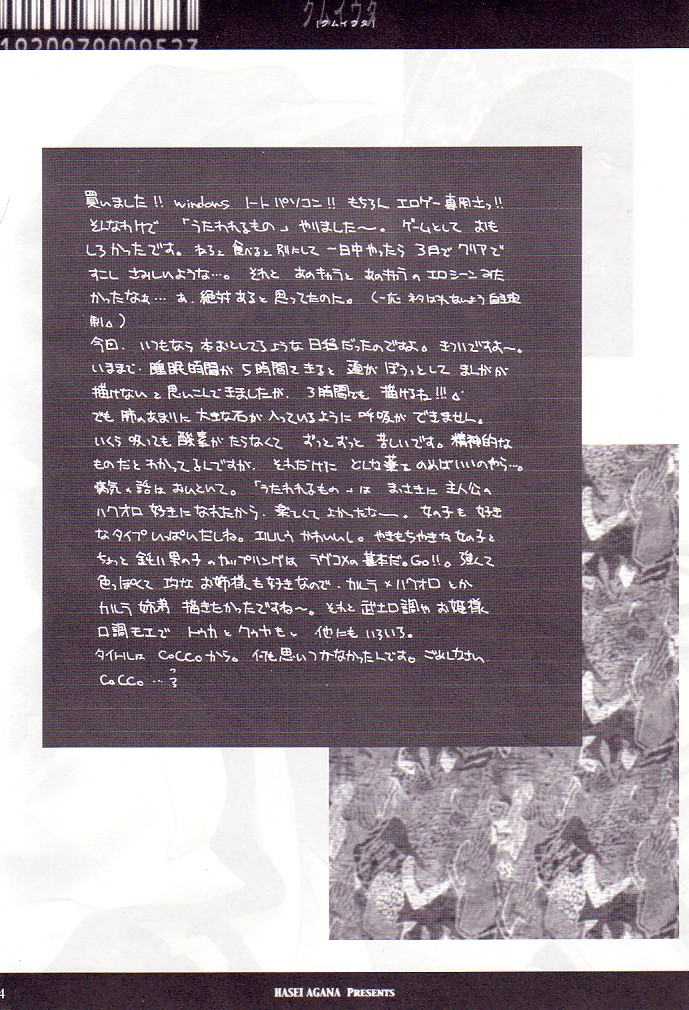 クムイウタ
[クムイウタ]
1920979009523
買いました!! windows ノートパソコン!! もちろん エロゲー専用さっ!!
そんなわけで 「うたわれるもの」 やりました〜。 ゲームとして おも
しろかったです。 ねると 食べると 別にして 一日中やったら 3日で クリアで
すこし さみしいような…。 それと あのキャラと あのキャラの エロシーンみた
かったなぁ… あ、絶対あると思ってたのに。 (一応 ネタばれないよう 自主規
制。)
今回、いつもなら 本おとしてるような 日程だったのですよ。 きついですよ〜。
いままで、睡眠時間が 5時間できると 頭が ぼうっとして まんがが
描けない と 思いこんできましたが、 3時間でも 描けるね!!!
でも 肺のあたりに 大きな石が 入っているように 呼吸が できません。
いくら 吸っても 酸素が たらなくて ずっとずっと 苦しいです。 精神的な
ものだと わかってるんですが、 それだけに どんな薬を のめばいいのやら…。
病気の話は おいといて。 「うたわれるもの」は まっさきに 主人公の
ハクオロ 好きに なれたから、 楽しくて よかったなー。 女の子も 好き
なタイプ いっぱいだしね。 エルルゥ かわいいし。 やきもちやきな 女の子と
ちょっと 鈍い 男の子 のカップリングは ラヴコメの 基本だ。Go!!。 強くて
色っぽくて な お姉様も好きなので、 カルラ×ハクオロ とか
カルラ 姉弟 描きたかったですね〜。 それと 武士口調や お姫様
口調モエで トウカ と クーヤも。 他にも いろいろ。
タイトルは Coccoから。 何も思いつかなかったんです。 ごめんなさい
Cocco …?
4
HASEI AGANA PRESENTS